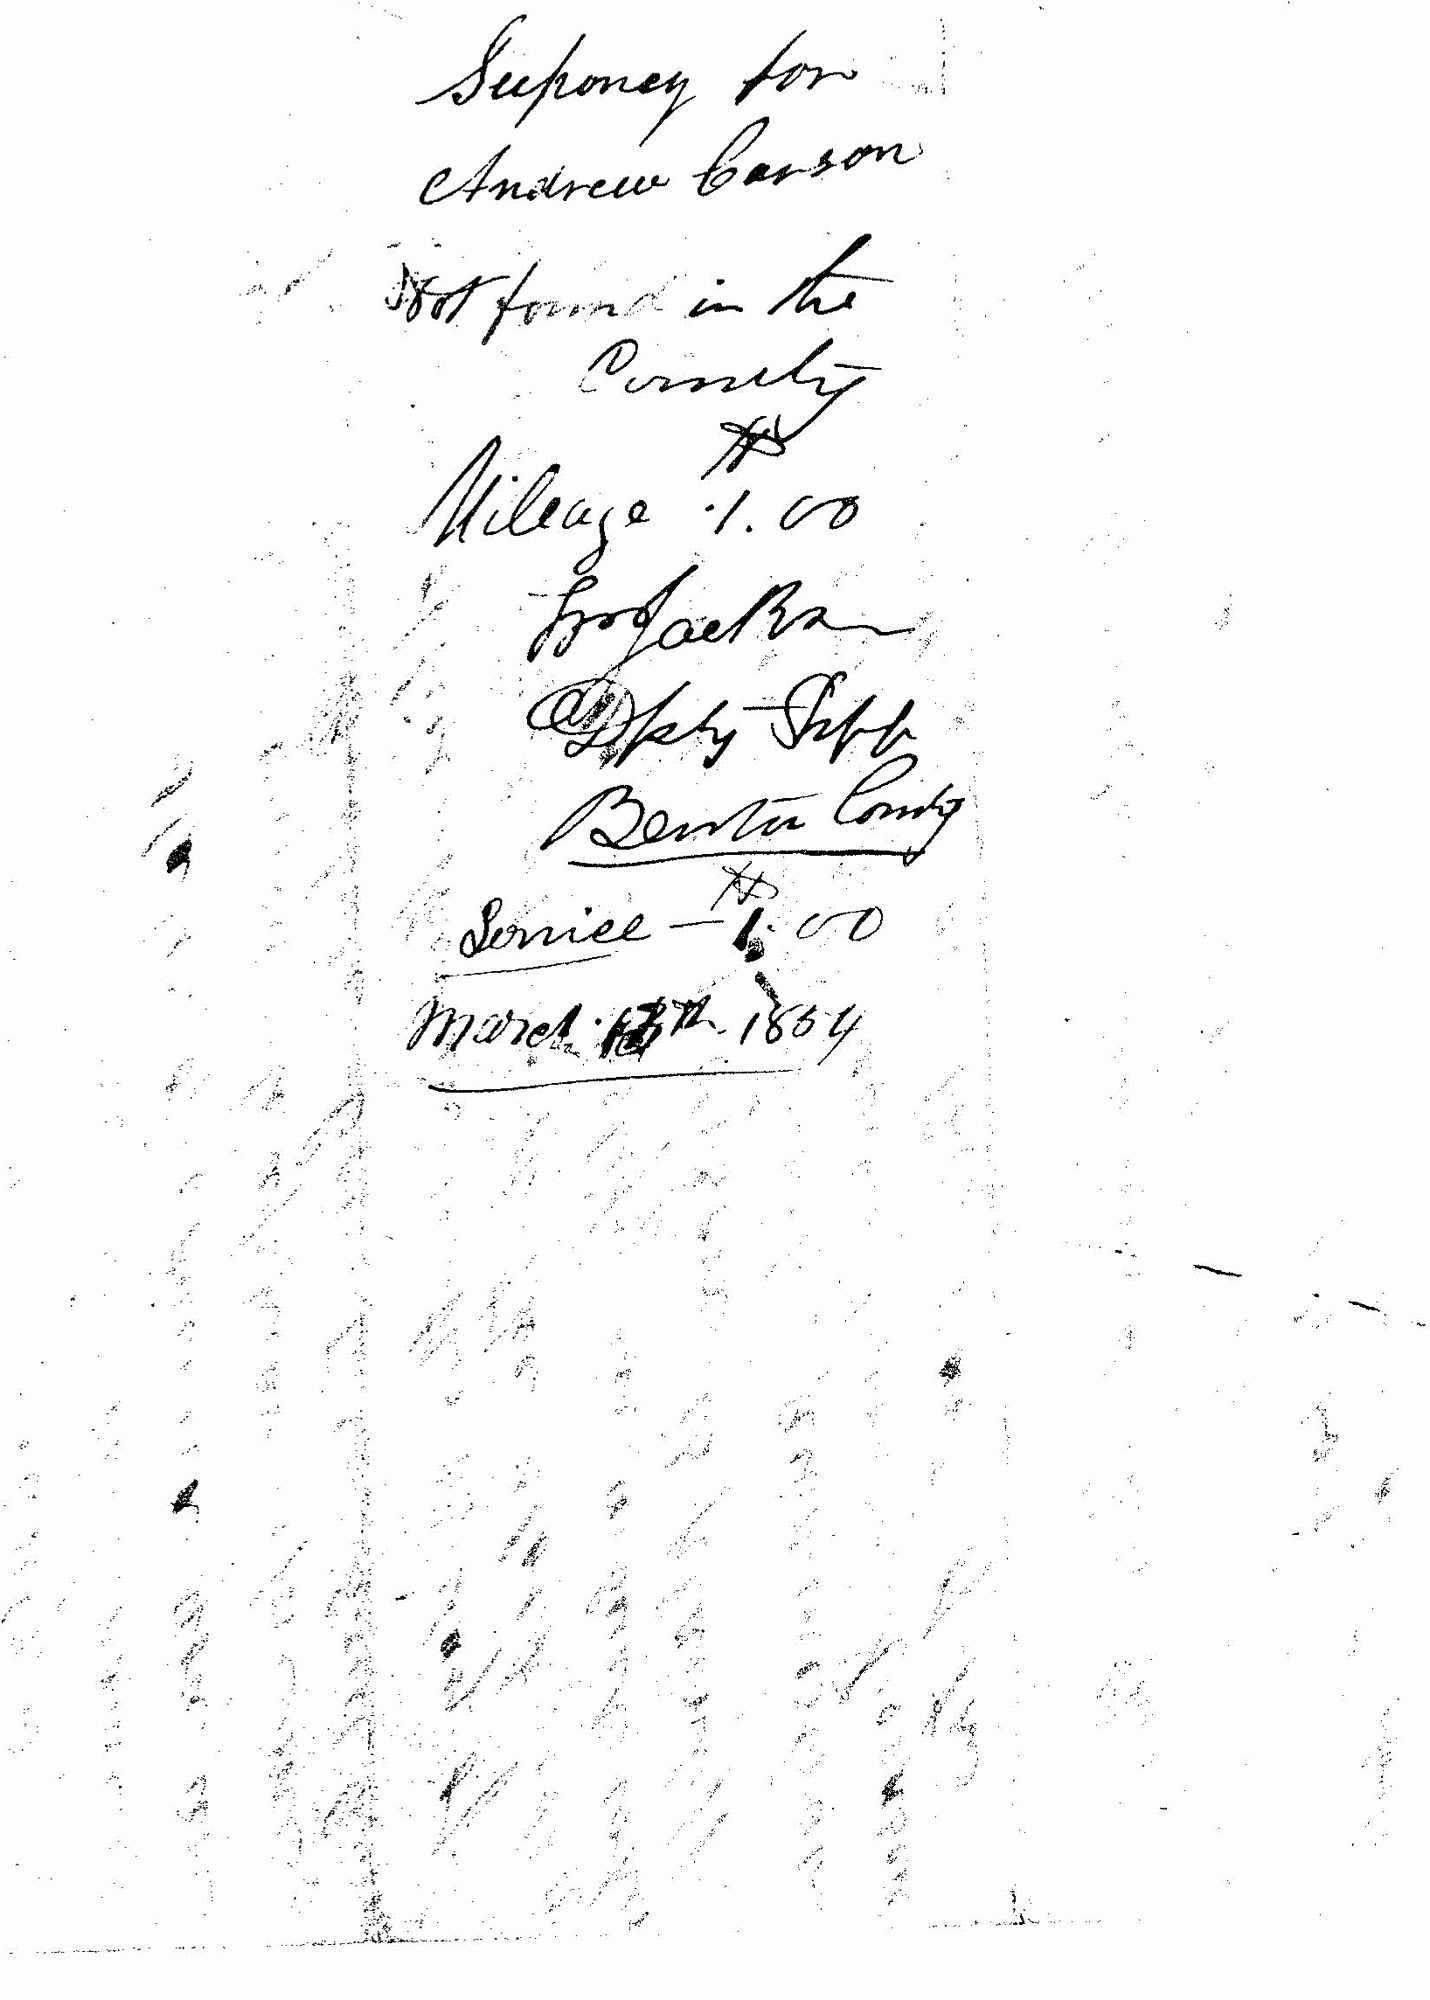 Suponey for
Andrew Carson
Not found in the
County
Mileage $1.00
Jackson
Dpty Shff
Benton County
Service — $1.00
March 1854